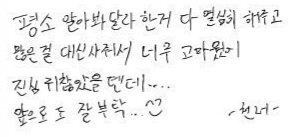 평소 알아봐달라 한거 다 열심히 해주고
많은걸 대신사줘서 너무 고마웠어
진심 귀찮았을 텐데....
앞으로도 잘 부탁...^^